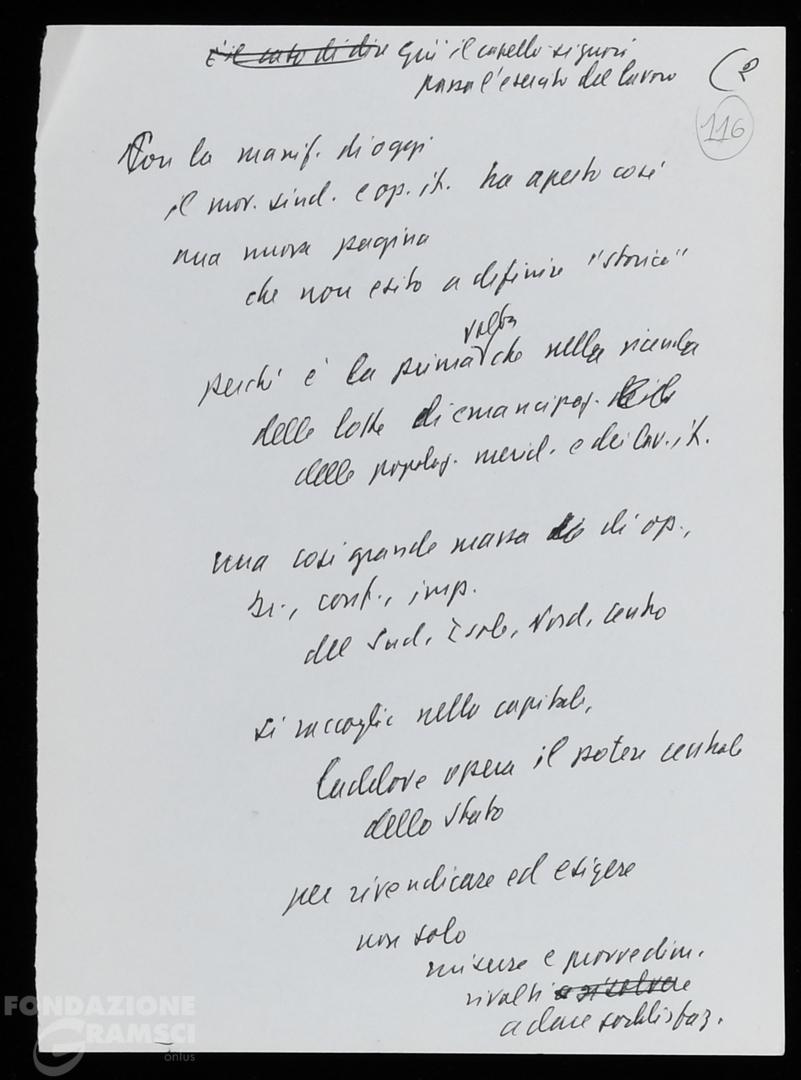 è il caso di dire giù il cappello signori
passa l'esercito del lavoro
(2
116
Con la manif. di oggi
il mov. sind. e op. it. ha aperto così
una nuova pagina
che non esito a definire "storica"
volta
perché è la prima che nella vicenda
delle lotte di emancipaz.
delle popolaz. merid. e dei lav. it.
una così grande massa di op.,
st., cont., imp.
del Sud, Isole, Nord, centro
si raccoglie nella capitale,
laddove opera il potere centrale
dello Stato
per rivendicare ed esigere
non solo
misure e provvedim.
rivolti a risolvere
a dare soddisfaz.
FONDAZIONE
GRAMSCI
onlus